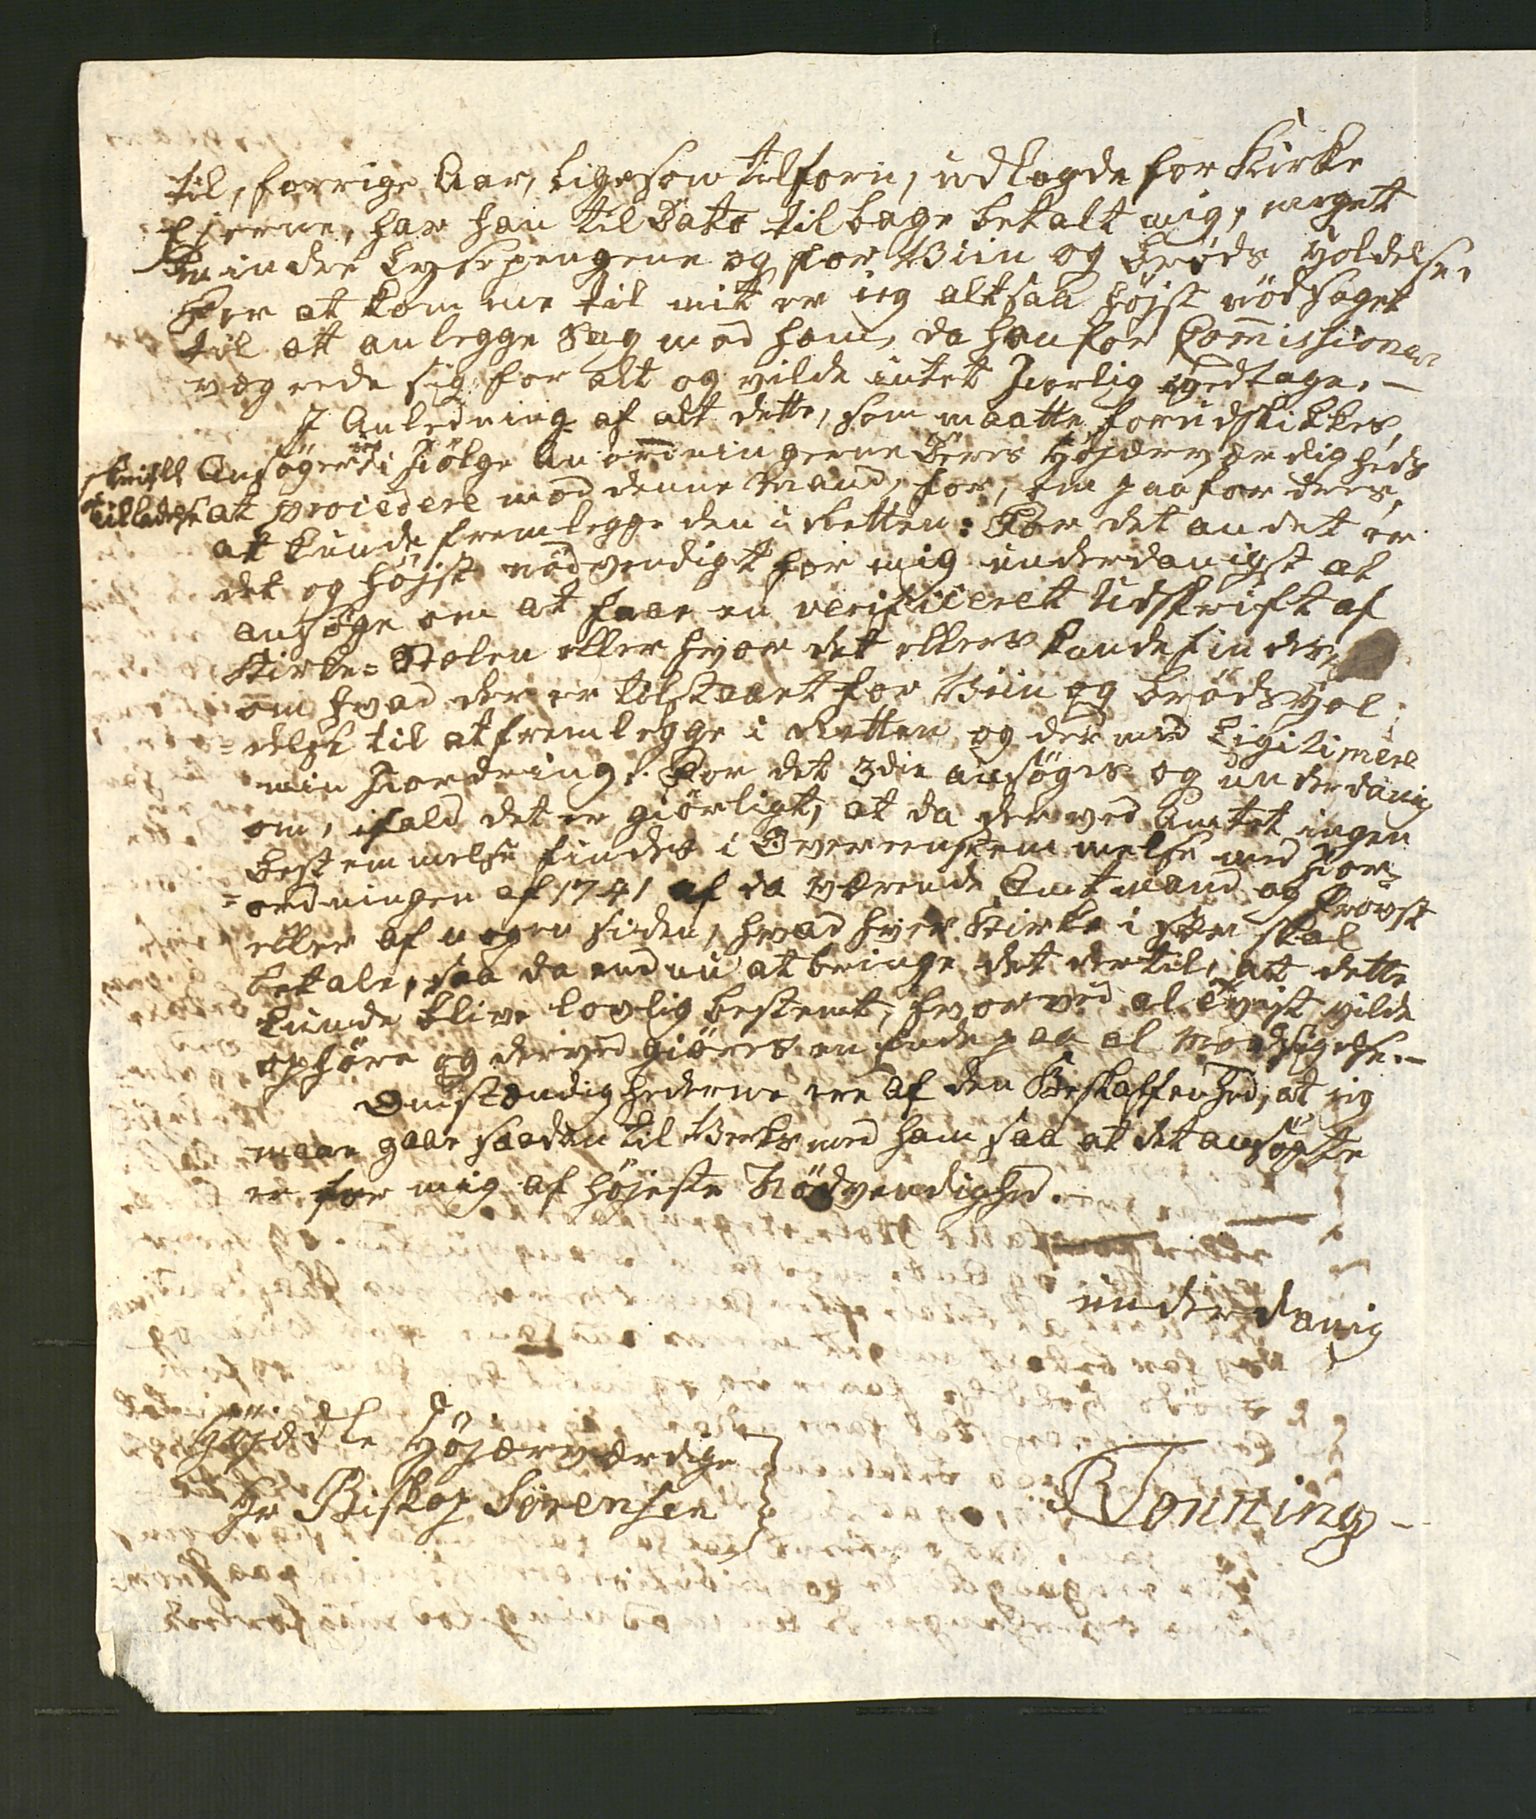 til, forrige Aar, ligesom tilforn, udlagde for Kirke
Eierne, har han til Dato tilbage betalt mig, meget
mindre Lysepengene og for Viin og Brøds Holdelse.
For at komme til mit er ieg altsaa højst nødsaget
til at anlegge Sag mod ham, da han for Commissionen
vegrede sig for alt og vilde intet Hørlig vedtage. —
I Anledning af alt dette, som maatte forudskikkes,
Ansøger ieg i Følge Anordningerne Deres Højærværdigheds
skriftl. Tilladelse at prociedere mod denne Mand, for, om paafordres,
at kunde fremlegge den i Retten: For det andet er
det og højst nødvendigt for mig underdanigst at
ansøge om at faae en verificeret Udskrift af
Kirke-Stolen eller hvor det ellers kunde findes,
om hvad der er tilstaaet for Viin og Brøds Hol
=delse til at fremlegge i Retten og der med Ligitimere
min Fordring. For det 3die ansøges og underdanig
om, ifald det er giørligt, at da der ved Amtet ingen
Bestemmelse findes i Overeenstemmelse med For-
=ordningen af 1741 af da værende Amtmand og Provst
eller af nogen siden, hvad hver Kirke i sær skal
betale, saa da end nu at bringe det dertil, at dette
kunde blive lovlig bestemt, hvorved al Tvist vilde
ophøre og derved giøres en Ende paa al Modsigelse. —
Omstændighederne ere af den Beskaffenhed, at ieg
maae gaae saadan til Verks med ham saa at det ansøgte
er for mig af højeste Nødvendighed. —
underdanig
Højædle Højærværdige
Hr Biskop Sørensen
R Tonning —